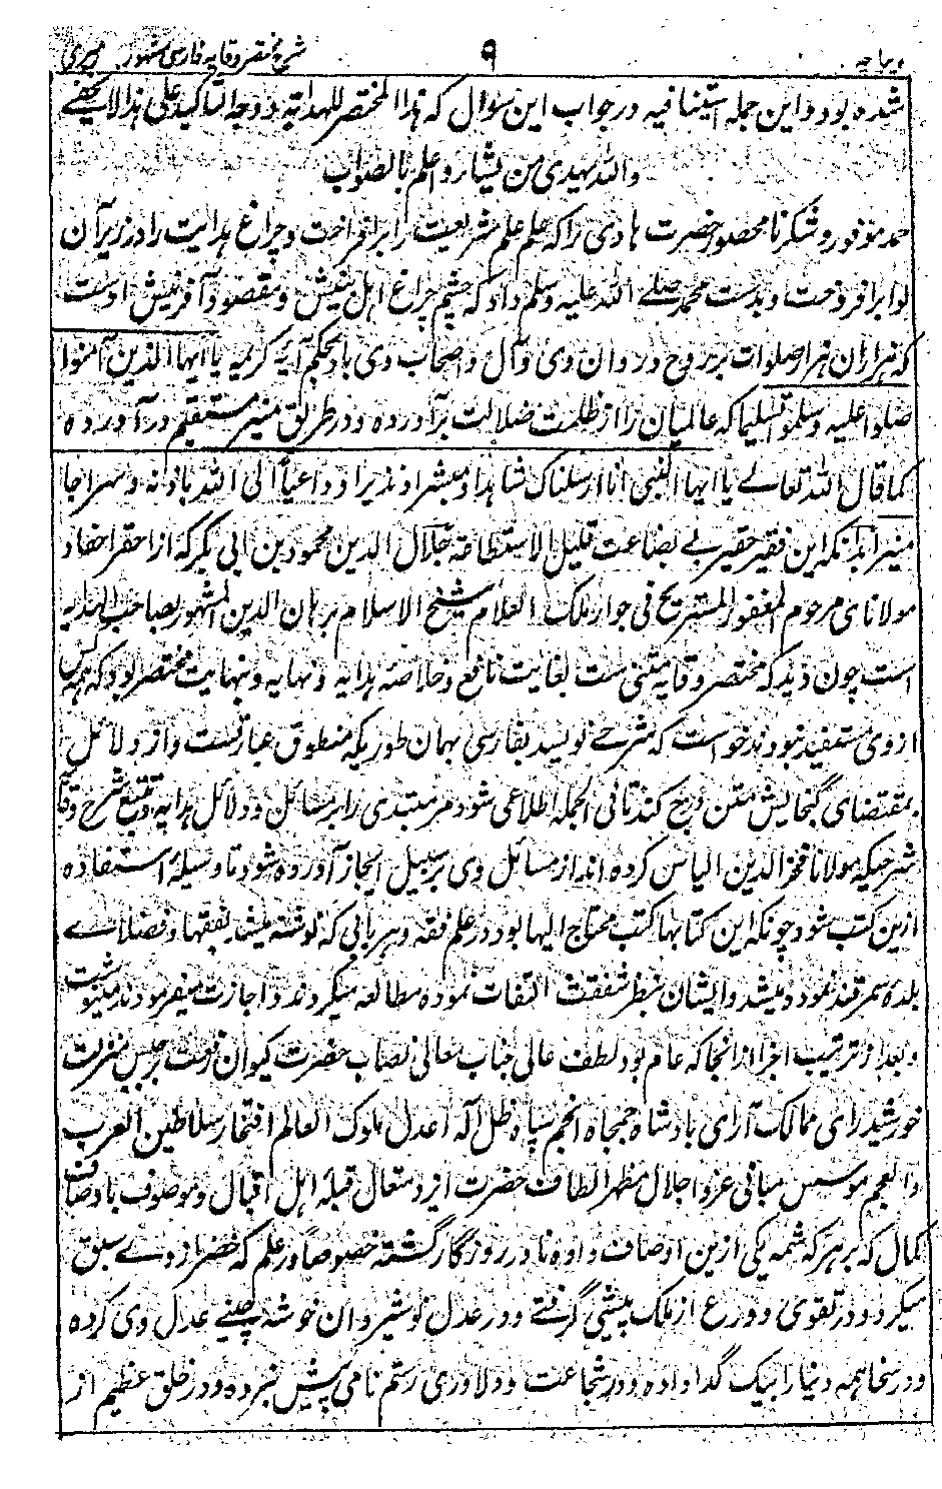 دیباچه ۹ شرح مختصر وقایه فارسی مشهور
شده بود و این جمله استینافیه در جواب این سؤال که هذا المختصر للهدایة و وجه التاکید علی هذا لا یخفے
والله یهدی من یشاء و اعلم بالصواب
حمد موفور و شکر نامحصور حضرت هادی را که علم علم شریعت را برافراخت و چراغ هدایت را در زیر آن
لوا برافروخت و بدست محمد صلے الله علیه وسلم داد که چشم چراغ اهل بینش و مقصود آفرینش اوست
که هزاران هزار صلوات بر روح و روان وی و آل و اصحاب وی باد بحکم آیۀ کریمه یا ایها الذین آمنوا
صلوا علیه وسلموا تسلیما که عالمیان را از ظلمت ضلالت برآورده و در طریق منیر مستقیم درآورده
کما قال الله تعالے یا ایها النبی انا ارسلناک شاهدا و مبشرا و نذیرا و داعیا الی الله باذنه و سراجا
منیرا بدانکه این فقیر حقیر بے بضاعت قلیل الاستطاعة جلال الدین محمود بن ابی بکر که از احقر احفاد
مولانای مرحوم المغفور المستریح فی جوار ملک العلام شیخ الاسلام برهان الدین المشهور بصاحب الهدایه
است چون دید که مختصر وقایه متنی ست بغایت نافع و خلاصه هدایه و نهایه و بنهایت مختصر بود که همه کس
از وی مستفید نبودند خواست که شرحے نویسد بفارسی بهمان طوریکه منطوق عبارتست و از دلائل
بمقتضای گنجایش متن درج کند تا فی الجمله اطلاعی شود مر مبتدی را بر مسائل و دلائل هدایه و تتبع شرح وقایه
شرحیکه مولانا فخر الدین الیاس کرده اند از مسائل وی بر سبیل ایجاز آورده شود تا وسیلۀ استفاده
ازین کتب شود چونکه این کتابها کتب محتاج الیها بود در علم فقه و هر بابی که نوشته میشد بفقها و فضلاے
بلدۀ سمرقند نموده میشد و ایشان بنظر شفقت التفات نموده مطالعه میکردند و اجازت میفرمودند مینوشت
و بعد از ترتیب اجزا از آنجا که عام بود لطف عالی جناب معالی نصاب حضرت کیوان رفعت برجیس منزلت
خورشید رای ممالک آرای بادشاه جمجاه انجم سپاه ظل اله اعدل ملوک العالم افتخار سلاطین العرب
والعجم موسس مبانی عز و اجلال مظهر الطاف حضرت ایزد متعال قبلۀ اهل اقبال و موصوف باوصاف
کمال که بر هر که شمه یکی ازین اوصاف داده نادر روزگار گشته خصوصا در علم که خضر از وے سبق
میگرد و در تقوی و ورع از ملک پیشی گرفتے و در عدل نوشیروان خوشه چینے عدل وی کرده
و در سخا همه دنیا را بیک گدا داده و در شجاعت و دلاوری رستم نامی پیش نبرده و در خلق عظیم از